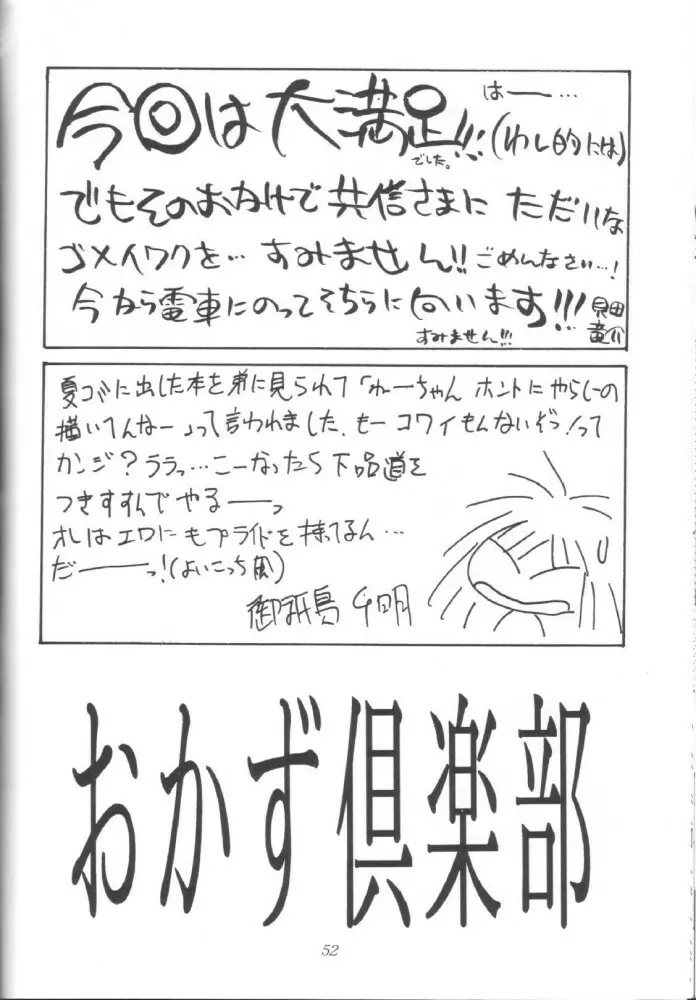 今回は大満足!!!
でした。
はー…
(わし的には)
でもそのおかげで共信さまに ただいな
ゴメイワクを… すみません!! ごめんなさい…!
今から電車にのってそちらに向います!!!
すみません!!!
貝田
竜介
夏コミに出した本を弟に見られて「ねーちゃん ホントにやらしーの
描いてんなー」って言われました. もー コワイもんないぞっ!って
カンジ?ララっ…こーなったら下品道を
つきすすんでやるーーっ
オレはエロにもプライドを持ってるん…
だーーっ!(よいこっち風)
御祈島 千明
おかず倶楽部
52